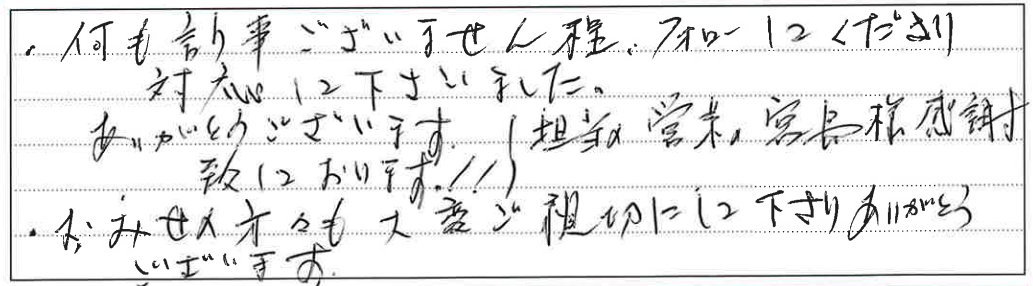 ・何も言う事ございません程、フォローしてくださり
対応して下さいました。
ありがとうございます。(担当の営業、宮長様感謝
致しております。!!)
・おみせの方々も大変ご親切にして下さりありがとう
ございます。